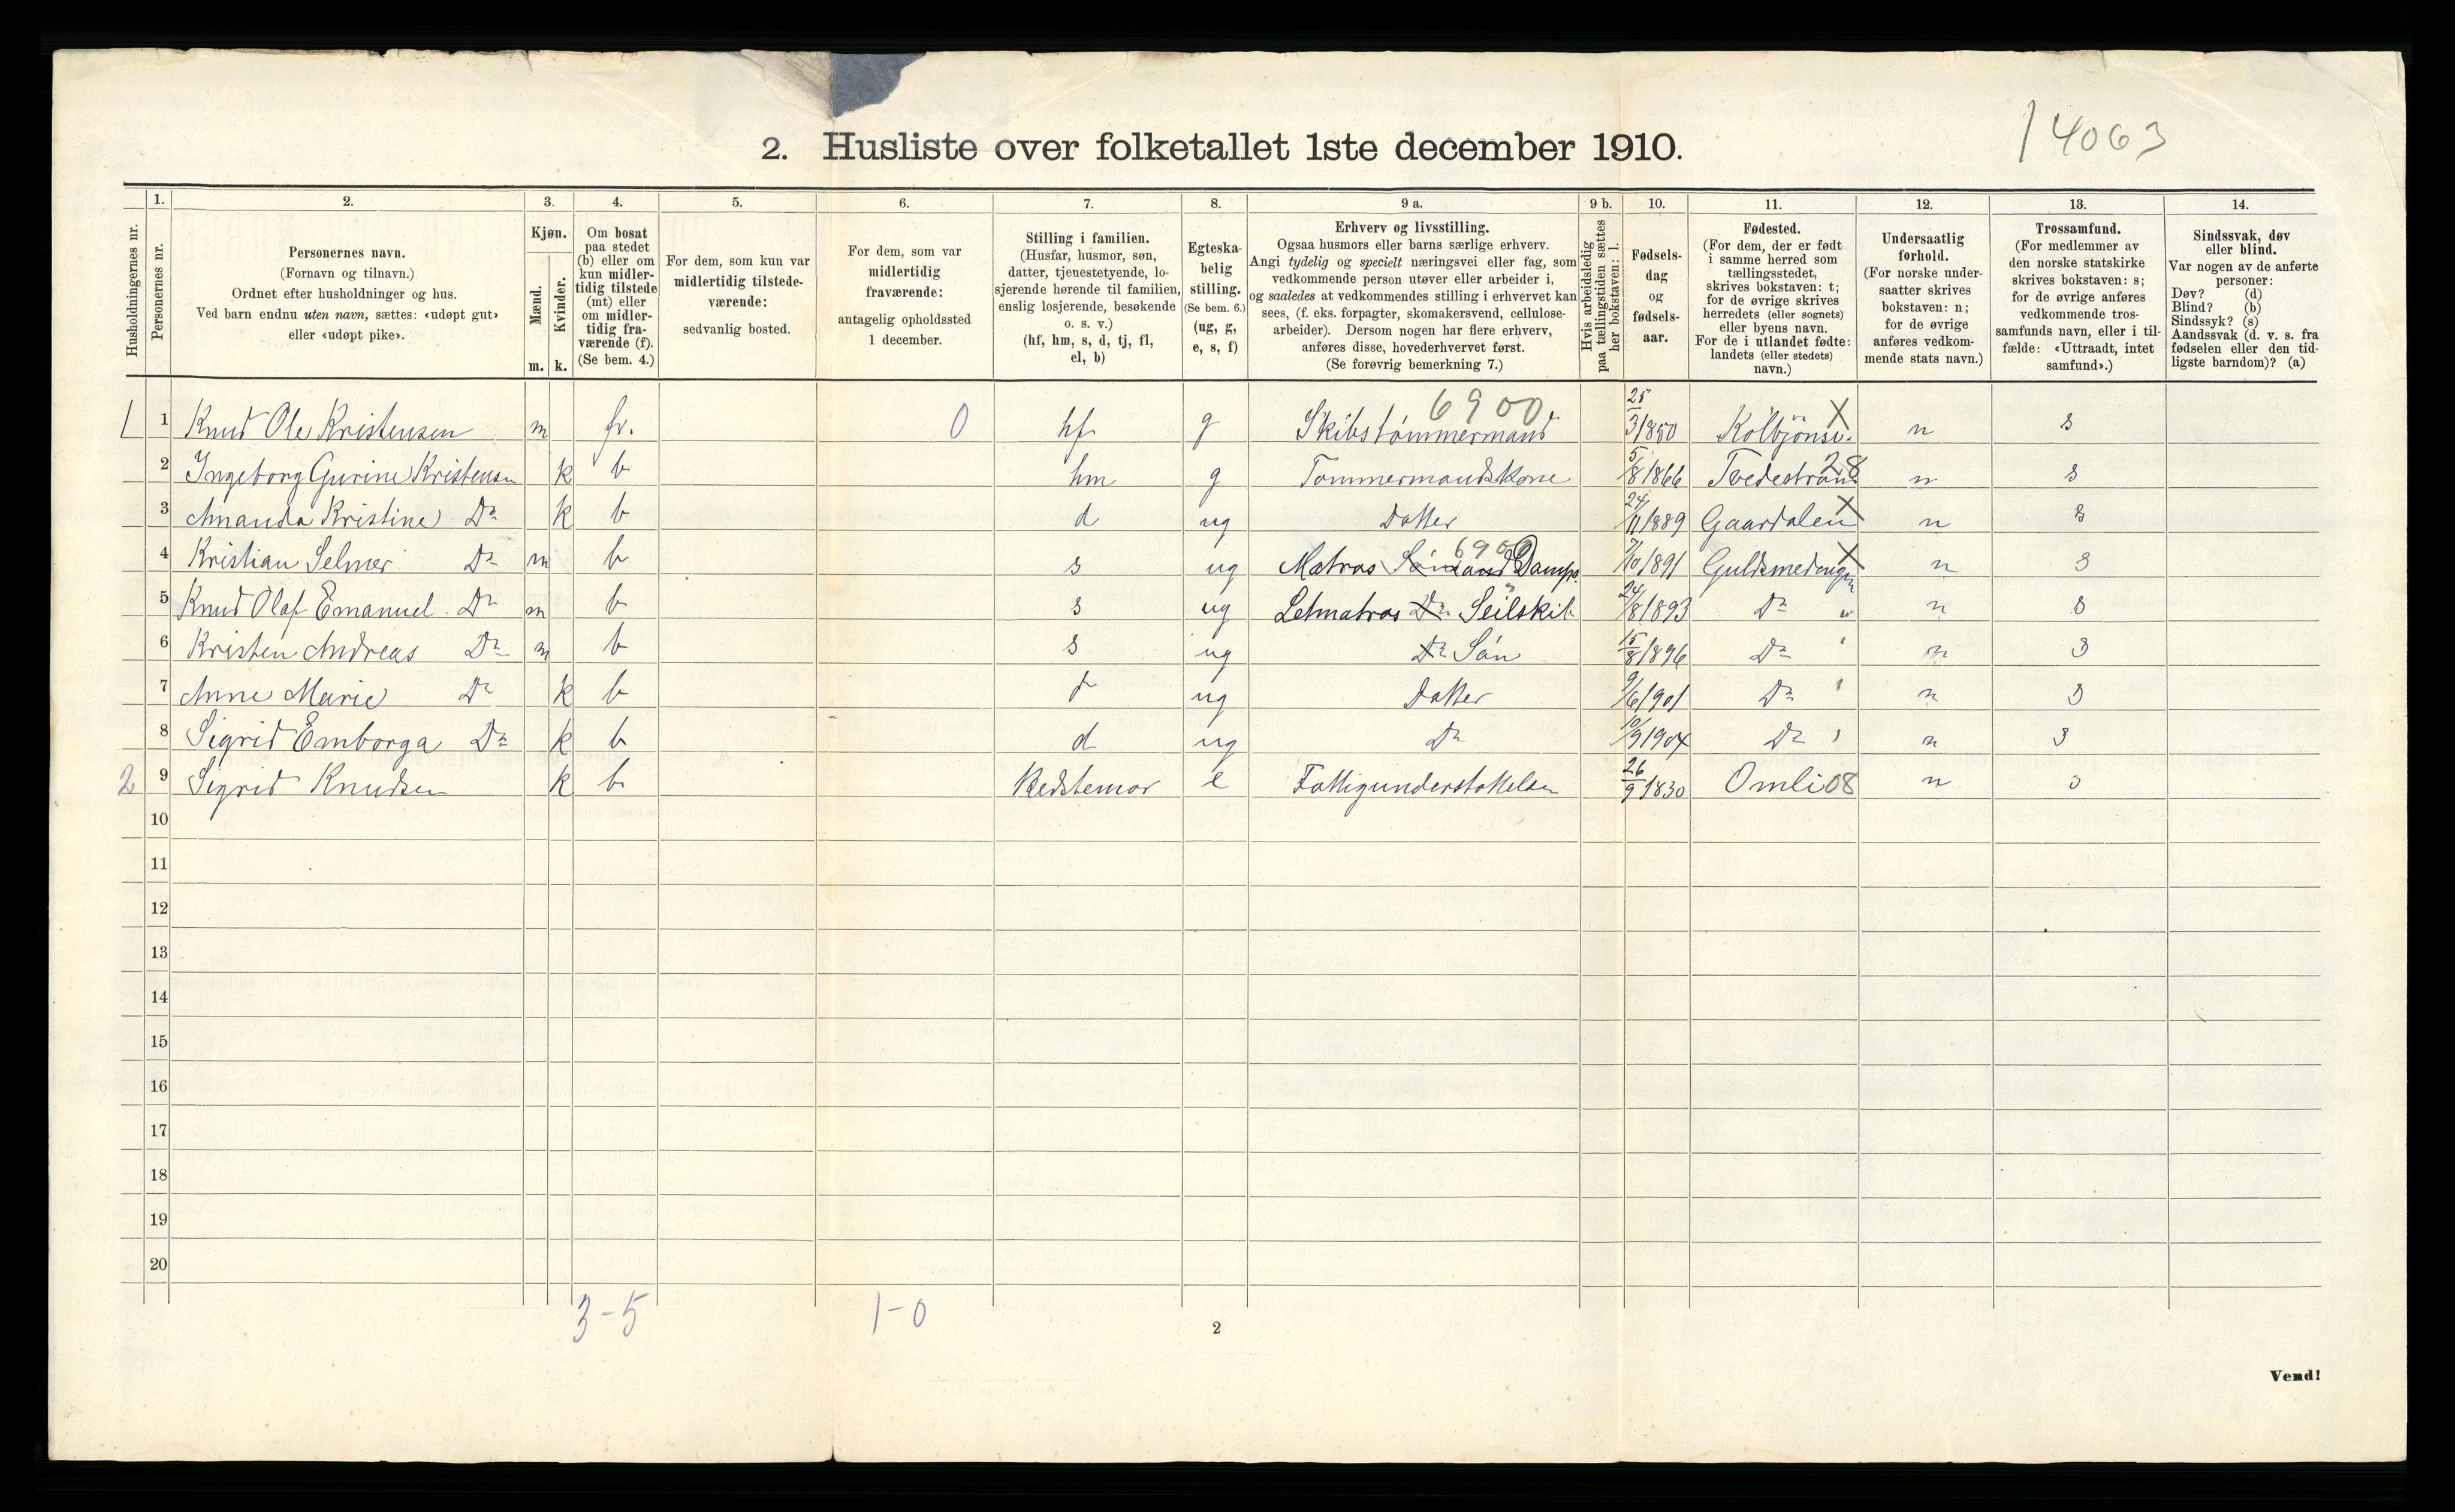 14063
2. Husliste over folketallet 1ste december 1910.
Husholdningernes nr.
1.
Personernes nr.
2.
Personernes navn.
(Fornavn og tilnavn.)
Ordnet efter husholdninger og hus.
Ved barn endnu uten navn, sættes: «udøpt gut»
eller «udøpt pike».
3.
Kjøn.
Mænd.
Kvinder.
m. k.
4.
Om bosat
paa stedet
(b) eller om
kun midler-
tidig tilstede
(mt) eller
om midler-
tidig fra-
værende (f).
(Se bem. 4.)
5.
For dem, som kun var
midlertidig tilstede-
værende:
sedvanlig bosted.
6.
For dem, som var
midlertidig
fraværende:
antagelig opholdssted
1 december.
7.
Stilling i familien.
(Husfar, husmor, søn,
datter, tjenestetyende, lo-
sjerende hørende til familien,
enslig losjerende, besøkende
o. s. v.)
(hf, hm, s, d, tj, fl,
el, b)
8.
Egteska-
belig
stilling.
(Se bem. 6.)
(ug, g,
e, s, f)
9 a.
Erhverv og livsstilling.
Ogsaa husmors eller barns særlige erhverv.
Angi tydelig og specielt næringsvei eller fag, som
vedkommende person utøver eller arbeider i,
og saaledes at vedkommendes stilling i erhvervet kan
sees, (f. eks. forpagter, skomakersvend, cellulose-
arbeider). Dersom nogen har flere erhverv,
anføres disse, hovederhvervet først.
(Se forøvrig bemerkning 7.)
9 b.
Hvis arbeidsledig
paa tællingstiden sættes
her bokstaven: l.
10.
Fødsels-
dag
og
fødsels-
aar.
11.
Fødested.
(For dem, der er født
i samme herred som
tællingsstedet,
skrives bokstaven: t;
for de øvrige skrives
herredets (eller sognets)
eller byens navn.
For de i utlandet fødte:
landets (eller stedets)
navn.)
12.
Undersaatlig
forhold.
(For norske under-
saatter skrives
bokstaven: n;
for de øvrige
anføres vedkom-
mende stats navn.)
13.
Trossamfund.
(For medlemmer av
den norske statskirke
skrives bokstaven: s;
for de øvrige anføres
vedkommende tros-
samfunds navn, eller i til-
fælde: «Uttraadt, intet
samfund».)
14.
Sindssvak, døv
eller blind.
Var nogen av de anførte
personer:
Døv? (d)
Blind? (b)
Sindssyk? (s)
Aandssvak (d. v. s. fra
fødselen eller den tid-
ligste barndom)? (a)
1 1 Knud Ole Kristensen m fr. 0 hf g Skibstømmermand 6900 25/3 1850 X n s
2 Ingeborg Gurine Kristensen k b hm g Tømmermandskone 5/8 1866 Tvedestrand 28 n s
3 Amanda Kristine Do k b d ug Datter 24/11 1889 Gaardalen X n s
4 Kristian Selmer Do m b s ug Matros Sømand Damps. 690 7/10 1891 X n s
5 Knud Olaf Emanuel Do m b s ug Letmatros Do Seilskib 24/8 1893 Do n s
6 Kristen Andreas Do m b s ug Do Søn 15/8 1896 Do n s
7 Anne Marie Do k b d ug Datter 9/6 1901 Do n s
8 Sigrid Emborga Do k b d ug Do 10/9 1904 Do n s
2 9 Sigrid Knudsen k b Bedstemor e Fattigunderstøttelse 26/9 1830 Omli 08 n s
10
11
12
13
14
15
16
17
18
19
20
3-5 1-0
2
Vend!